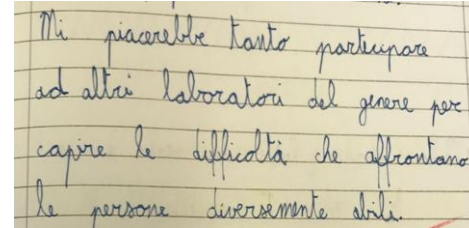 Mi piacerebbe tanto partecipare
ad altri laboratori del genere per
capire le difficoltà che affrontano
le persone diversemente abili.